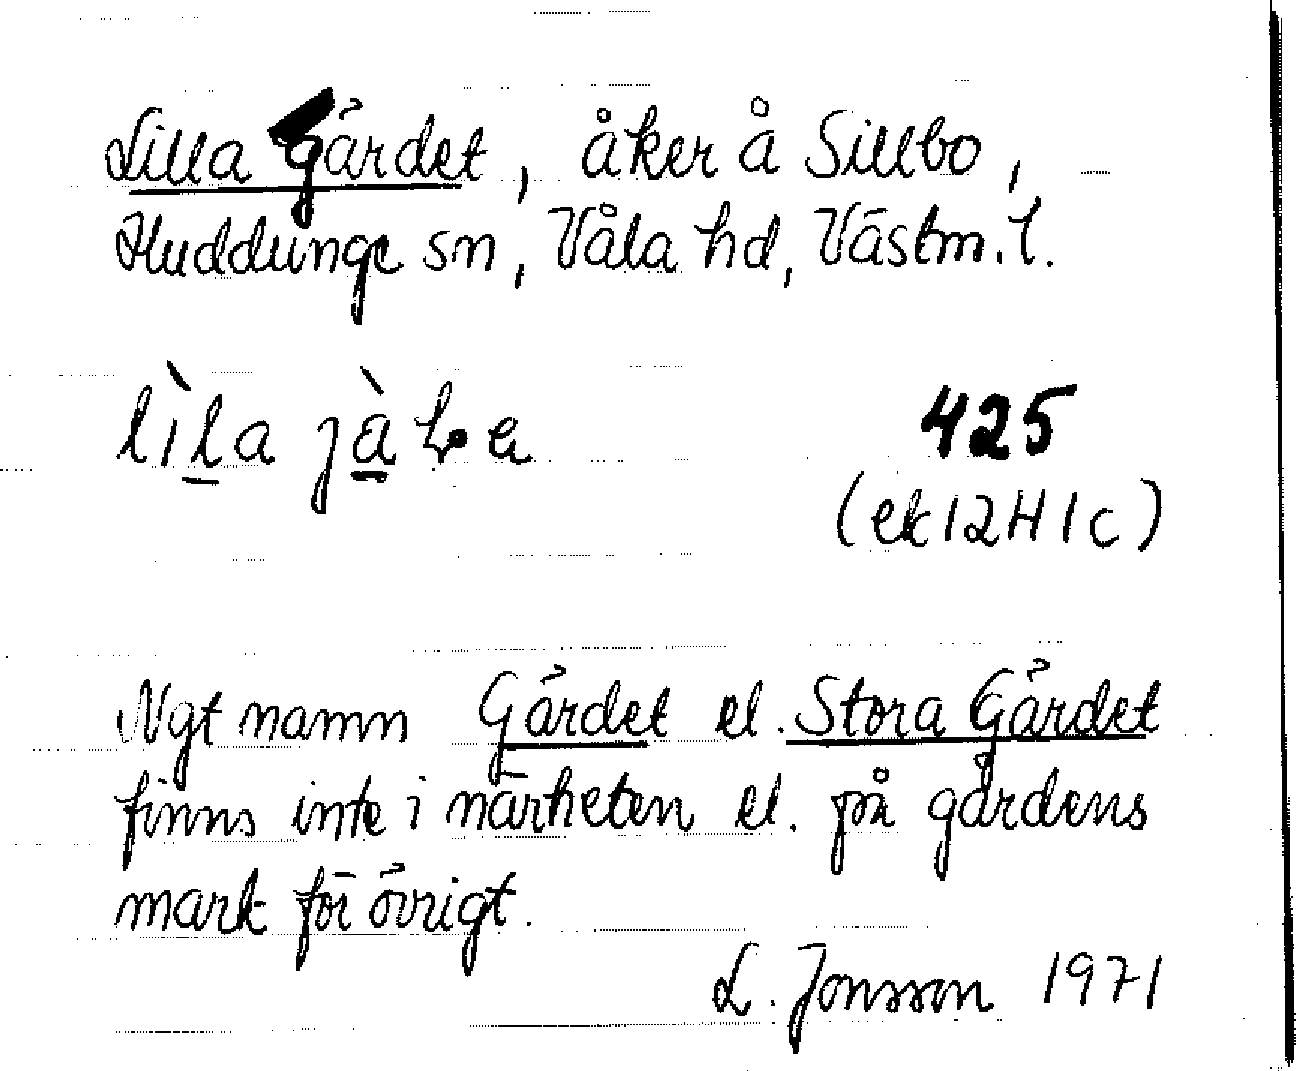 Lilla Gärdet, åker å Sillbo,
Huddunge sn, Våla hd, Västm. l.
lìla jà
425
(ek 12 H 1 c)
Ngt namn Gärdet el. Stora Gärdet
finns inte i närheten el. på gårdens
mark för övrigt.
L. Jonsson 1971